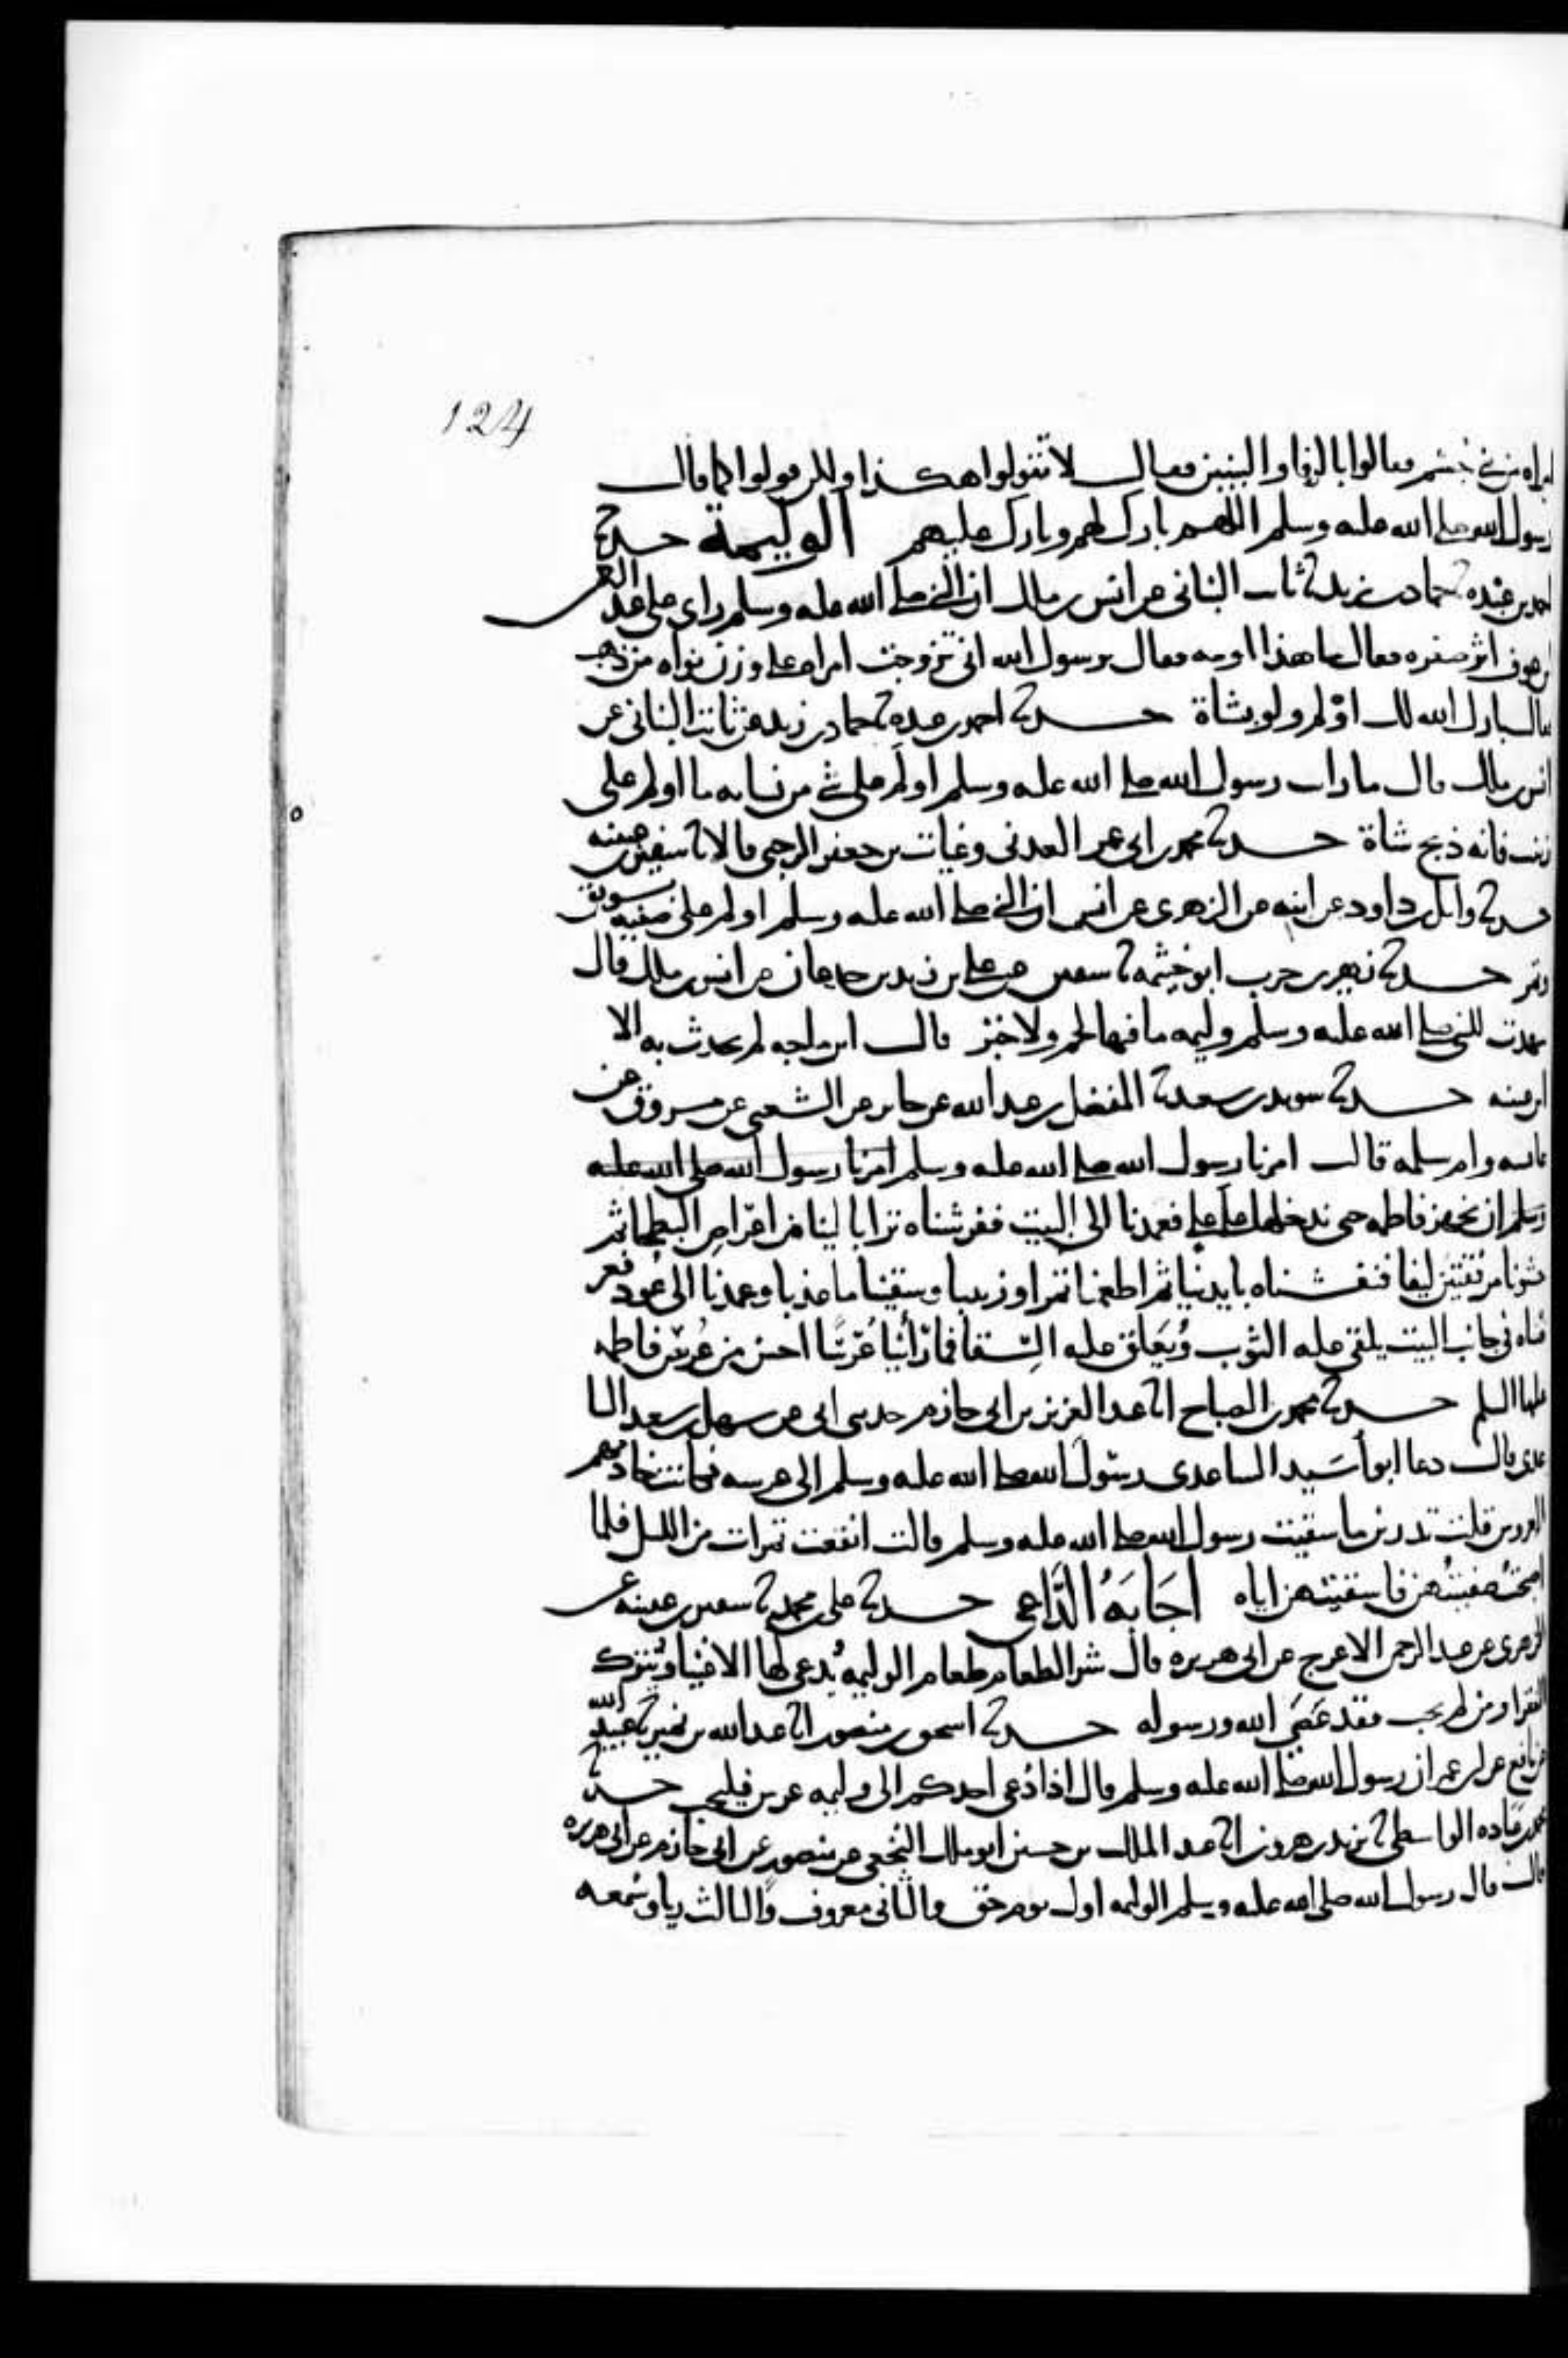 124
امراه من بني جشم فقالوا بالرفا والبنين فقال لا تقولوا هكذا ولكن قولوا كما قال
رسول الله صلى الله عليه وسلم اللهم بارك لهم وبارك عليهم الوليمة حدثنا
احمد بن عبده ثنا حماد بن زيد ثنا ثابت البناني عن انس بن ملك ان النبي صلى الله عليه وسلم راى على عبد الرحمن
بن عوف اثر صفره فقال ما هذا او مه فقال يرسول الله اني تزوجت امراه على وزن نواه من ذهب
فقال بارك الله لك اولم ولو بشاة حدثنا احمد بن عبده ثنا حماد بن زيد عن ثابت البناني عن
انس بن ملك قال ما رايت رسول الله صلى الله عليه وسلم اولم على شي من نسايه ما اولم على
زينب فانه ذبح شاة حدثنا محمد بن ابي عمر العدني وغياث بن جعفر الرحبي قالا ثنا سفين بن عيينه
حدثنا وايل بن داود عن ابنه عن الزهري عن انس ان النبي صلى الله عليه وسلم اولم على صفيه بسويق
وتمر حدثنا زهير بن حرب ابو خيثمه ثنا سفين عن علي بن زيد بن جدعان عن انس بن ملك قال
شهدت للنبي صلى الله عليه وسلم وليمه ما فيها لحم ولا خبز قال ابن ماجه لم يحدث به الا
ابن عيينه حدثنا سويد بن سعيد ثنا المفضل بن عبد الله عن جابر عن الشعبي عن مسروق عن
عايشه وام سلمه قالت امرنا رسول الله صلى الله عليه وسلم امرنا رسول الله صلى الله عليه
وسلم ان نجهز فاطمه حتى ندخلها على علي فعمدنا الى البيت ففرشناه ترابا لينا من اعراض البطحا ثم
حشونا مرفقتين ليفا فنفشناه بايدينا ثم اطعمنا تمرا وزبيبا وسقينا ما عذبا وعمدنا الى عود فعر
ضناه في جانب البيت يلقى عليه الثوب ويعلق عليه السقا فما راينا عرسا احسن من عرس فاطمه
عليها السلم حدثنا محمد بن الصباح انا عبد العزيز بن ابي حازم حدثني ابي عن سهل بن سعد السا
عدي قال دعا ابو اسيد الساعدي رسول الله صلى الله عليه وسلم الى عرسه فكانت خادمهم
العروس قلت تدرين ما سقيت رسول الله صلى الله عليه وسلم قالت انقعت تمرات من الليل فلما
اصبحت صفيتهن فاسقيتهن اياه اجابة الداعي حدثنا علي بن محمد ثنا سفين بن عيينه عن
الزهري عن عبد الرحمن الاعرج عن ابي هريره قال شر الطعام طعام الوليمه يدعى لها الاغنيا ويترك
الفقرا ومن لم يجب فقد عصى الله ورسوله حدثنا اسحق بن منصور انا عبد الله بن نمير ثنا عبيد الله
عن نافع عن ابن عمر ان رسول الله صلى الله عليه وسلم قال اذا دعي احدكم الى وليمه عرس فليجب حدثنا
محمد بن عباده الواسطي ثنا يزيد بن هرون انا عبد الملك بن حسين ابو ملك النخعي عن منصور عن ابي حازم عن ابي هريره
قال قال رسول الله صلى الله عليه وسلم الوليمه اول يوم حق والثاني معروف والثالث ريا وسمعه